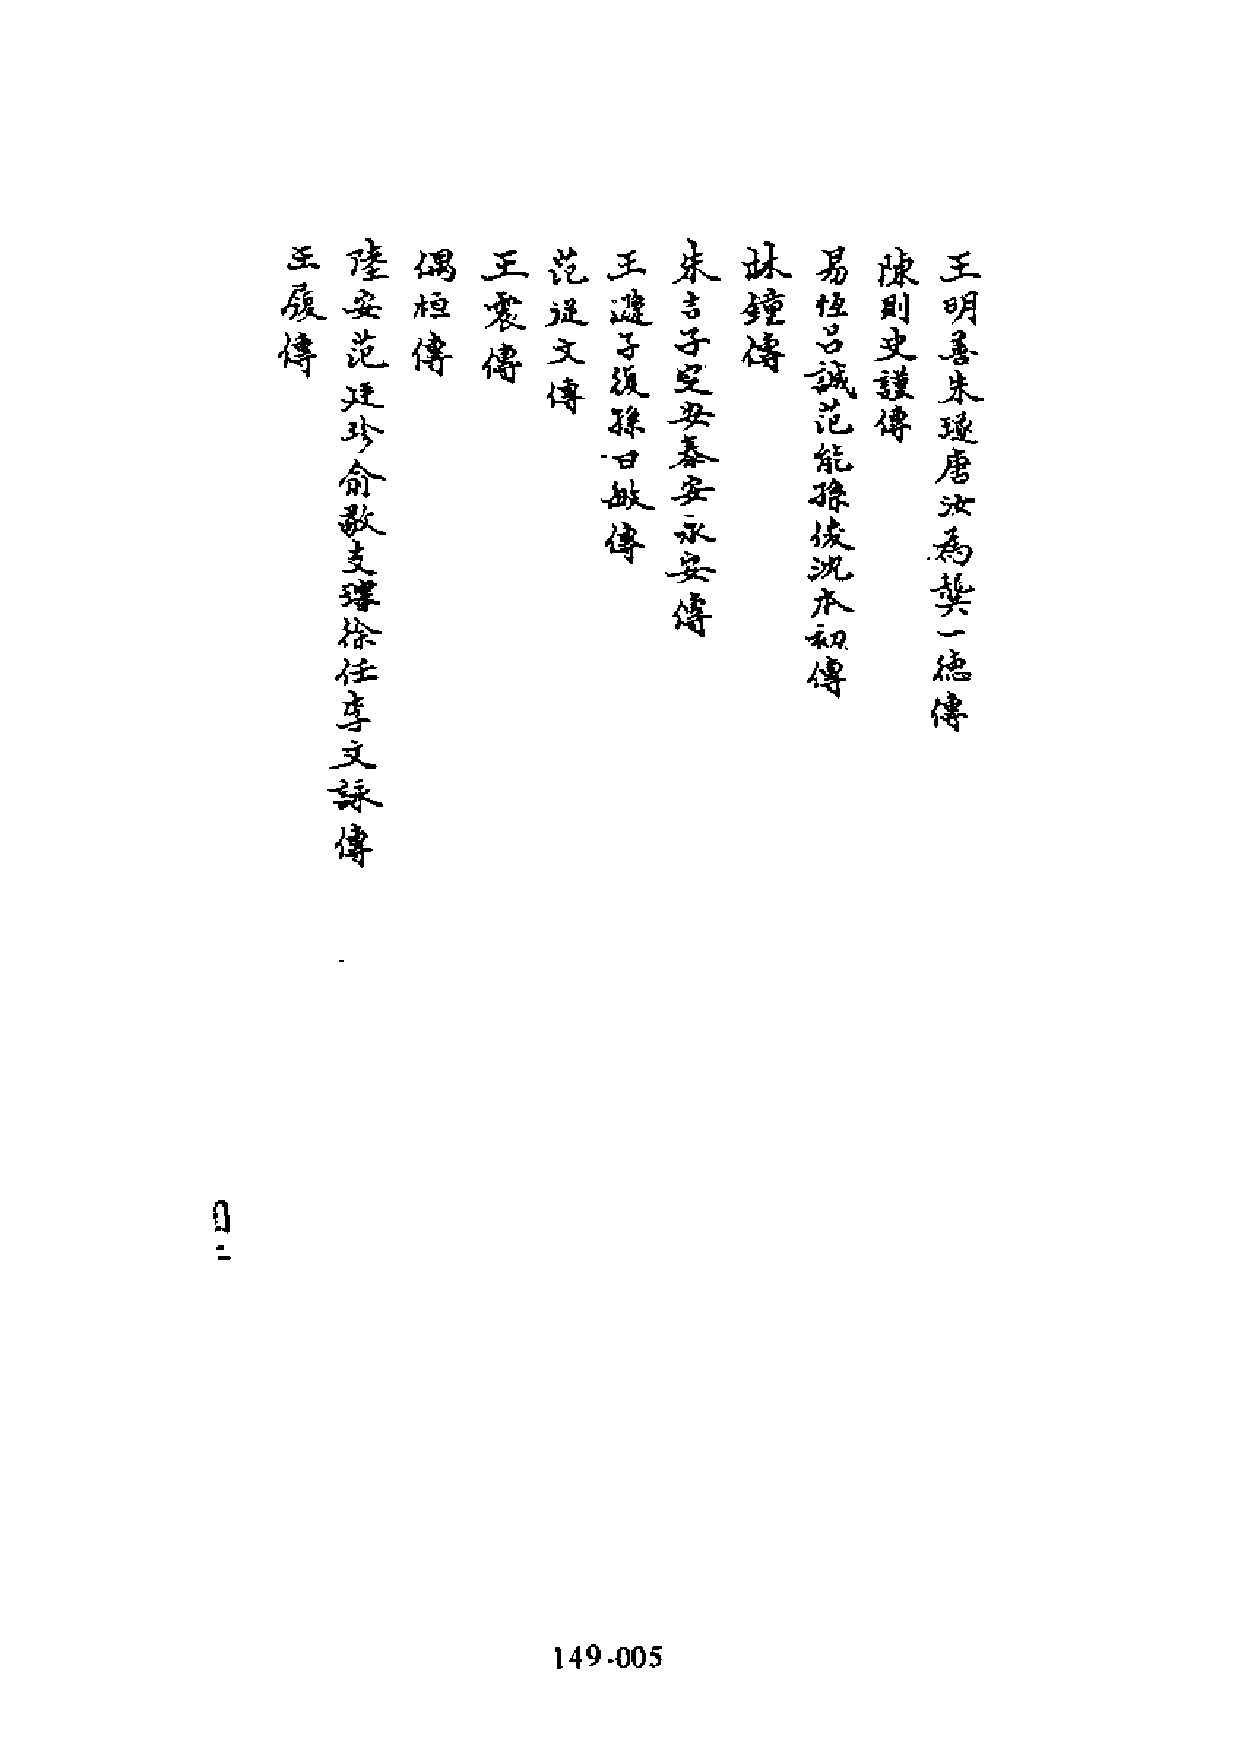 王明善朱瑧唐汝為龔一德傳
陳則史謹傳
易恆呂誠范能孫俊沈本初傳
林鐘傳
朱吉子定安泰安永安傳
王遜子復孫曰敏傳
范從文傳
王震傳
偶桓傳
陸安范廷珍俞敬支璍徐任李文詠傳
王履傳
149-005